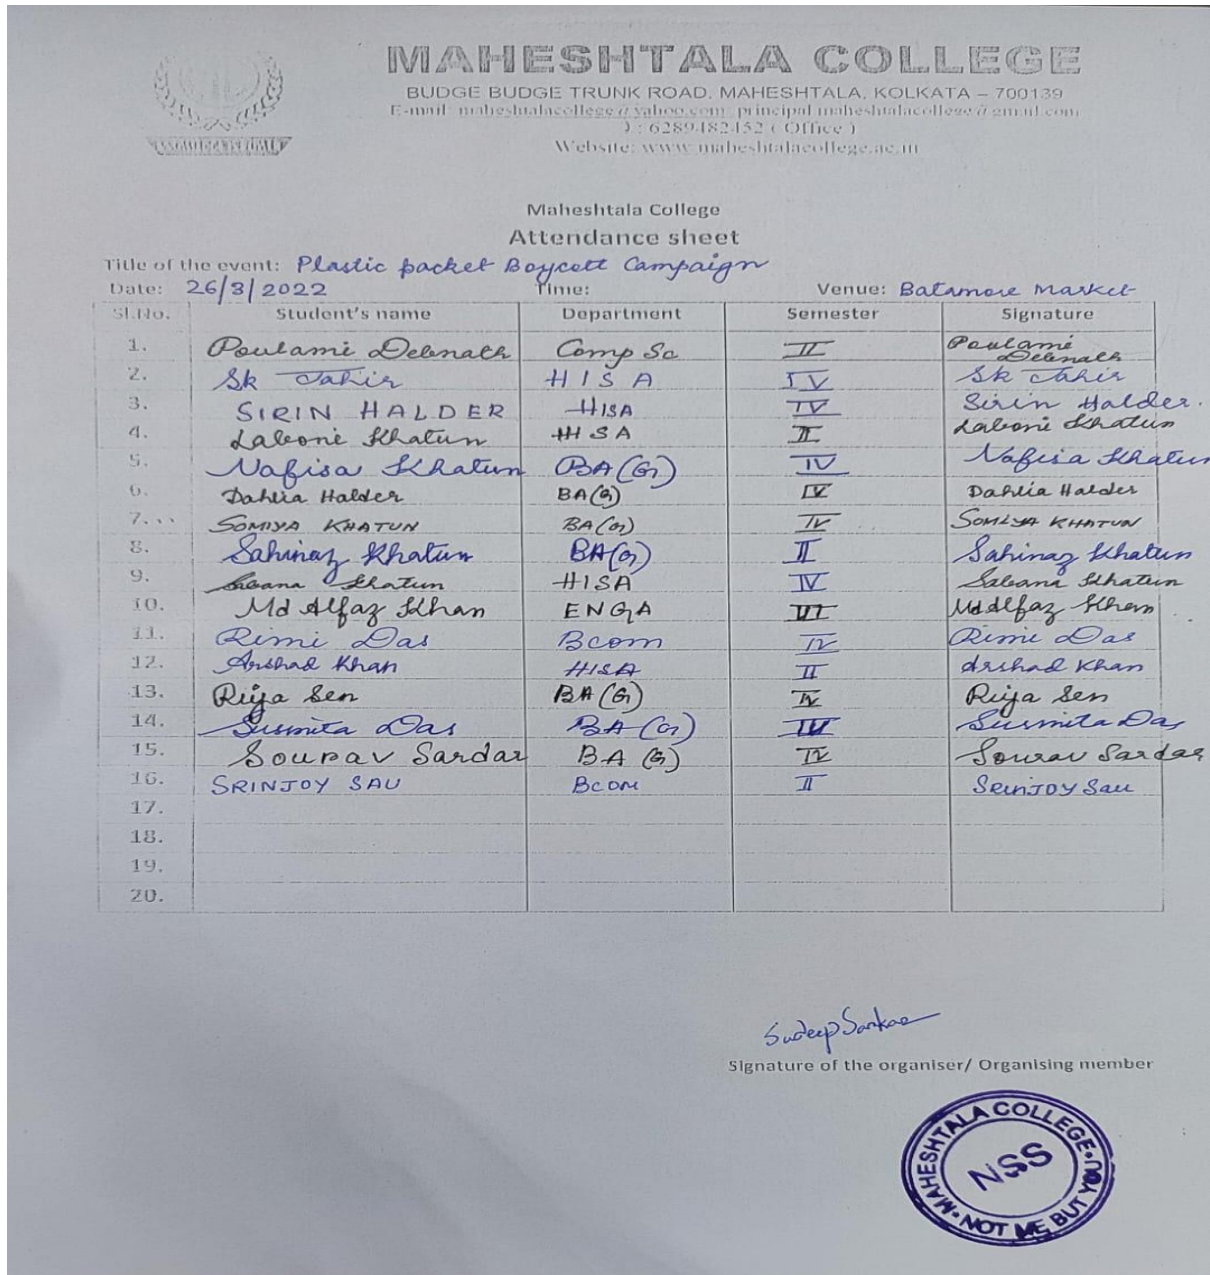 MAHESHTALA COLLEGE
BUDGE BUDGE TRUNK ROAD, MAHESHTALA, KOLKATA – 700139
E-mail: maheshtalacollege@yahoo.com, principal.maheshtalacollege@gmail.com
: 6289482452 ( Office )
Website: www.maheshtalacollege.ac.in
Maheshtala College
Attendance sheet
Title of the event: Plastic packet Boycott Campaign
Date: 26/3/2022 Time: Venue: Batamore Market
Sl.No. Student's name Department Semester Signature
1. Poulami Debnath Comp Sc II Poulami Debnath
2. Sk Tahir HISA IV Sk Tahir
3. SIRIN HALDER HISA IV Sirin Halder.
4. Laboni Khatun HISA II Laboni Khatun
5. Nafisa Khatun BA(G) IV Nafisa Khatun
6. Dahlia Halder BA(G) IV Dahlia Halder
7. SOMIYA KHATUN BA(G) IV SOMIYA KHATUN
8. Sahinaz Khatun BA(G) II Sahinaz Khatun
9. Sabana Khatun HISA IV Sabana Khatun
10. Md Alfaz Khan ENGA VI Md Alfaz Khan
11. Rimi Das Bcom IV Rimi Das
12. Arshad Khan HISA II Arshad Khan
13. Riya Sen BA(G) IV Riya Sen
14. Susmita Das BA(G) IV Susmita Das
15. Sourav Sardar BA(G) IV Sourav Sardar
16. SRINJOY SAU BCOM II SRINJOY SAU
17.
18.
19.
20.
Sudeep Sarkar
Signature of the organiser/ Organising member
MAHESHTALA COLLEGE
NSS
NOT ME BUT YOU